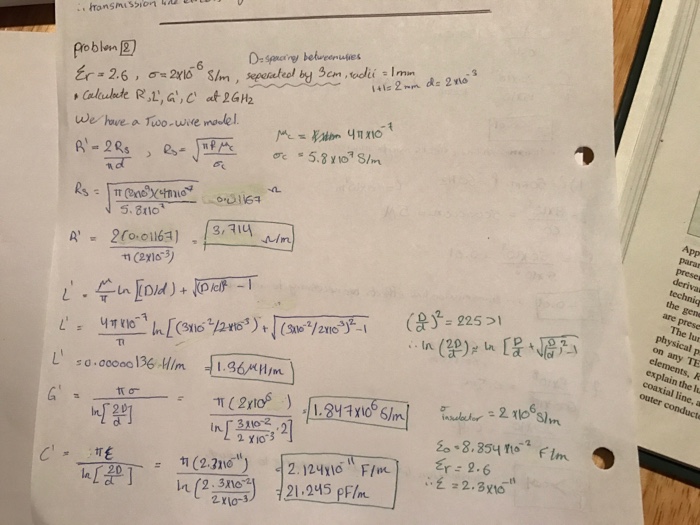 ∴ transmission line
problem [2]
D = spacing between wires
εr = 2.6 , σ = 2x10^-6 S/m , seperated by 3cm, radii = 1mm
1+1 = 2mm d = 2x10^-3
• Calculate R', L', G', C' at 2GHz
We have a Two-wire model.
R' = 2Rs/πd , Rs = √(πf μc/σc)
μc = 4πx10^-7
σc = 5.8x10^7 S/m
Rs = √(π(2x10^9)(4πx10^-7)/5.8x10^7) 0.01167 Ω
R' = 2(0.01167)/π(2x10^-3) = 3.714 Ω/m
L' = μ/π ln[(D/d) + √((D/d)² - 1
L' = 4πx10^-7/π ln[(3x10^-2/2x10^-3) + √((3x10^-2/2x10^-3)² - 1
(D/d)² = 225 >1
∴ ln(2D/d) ≈ ln[D/d + √((D/d)² - 1
L' = 0.00000136 H/m = 1.36 μH/m
G' = πσ/ln[2D/d] = π(2x10^6)/ln[3x10^-2/2x10^-3 · 2] = 1.847x10^6 S/m
σ insulator = 2x10^6 S/m
C' = πε/ln[2D/d] = π(2.3x10^-11)/ln(2·3x10^-2/2x10^-3) = 2.124x10^-11 F/m
= 21.245 pF/m
ε0 = 8.854x10^-2 F/m
εr = 2.6
∴ ε = 2.3x10^-11
App
para
prese
deriva
techniq
the gene
are prese
The lur
physical p
on any TE
elements, R
explain the lu
coaxial line, a
outer conducto